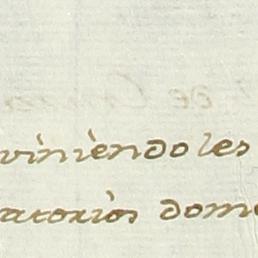 viniendoles
atorios dome